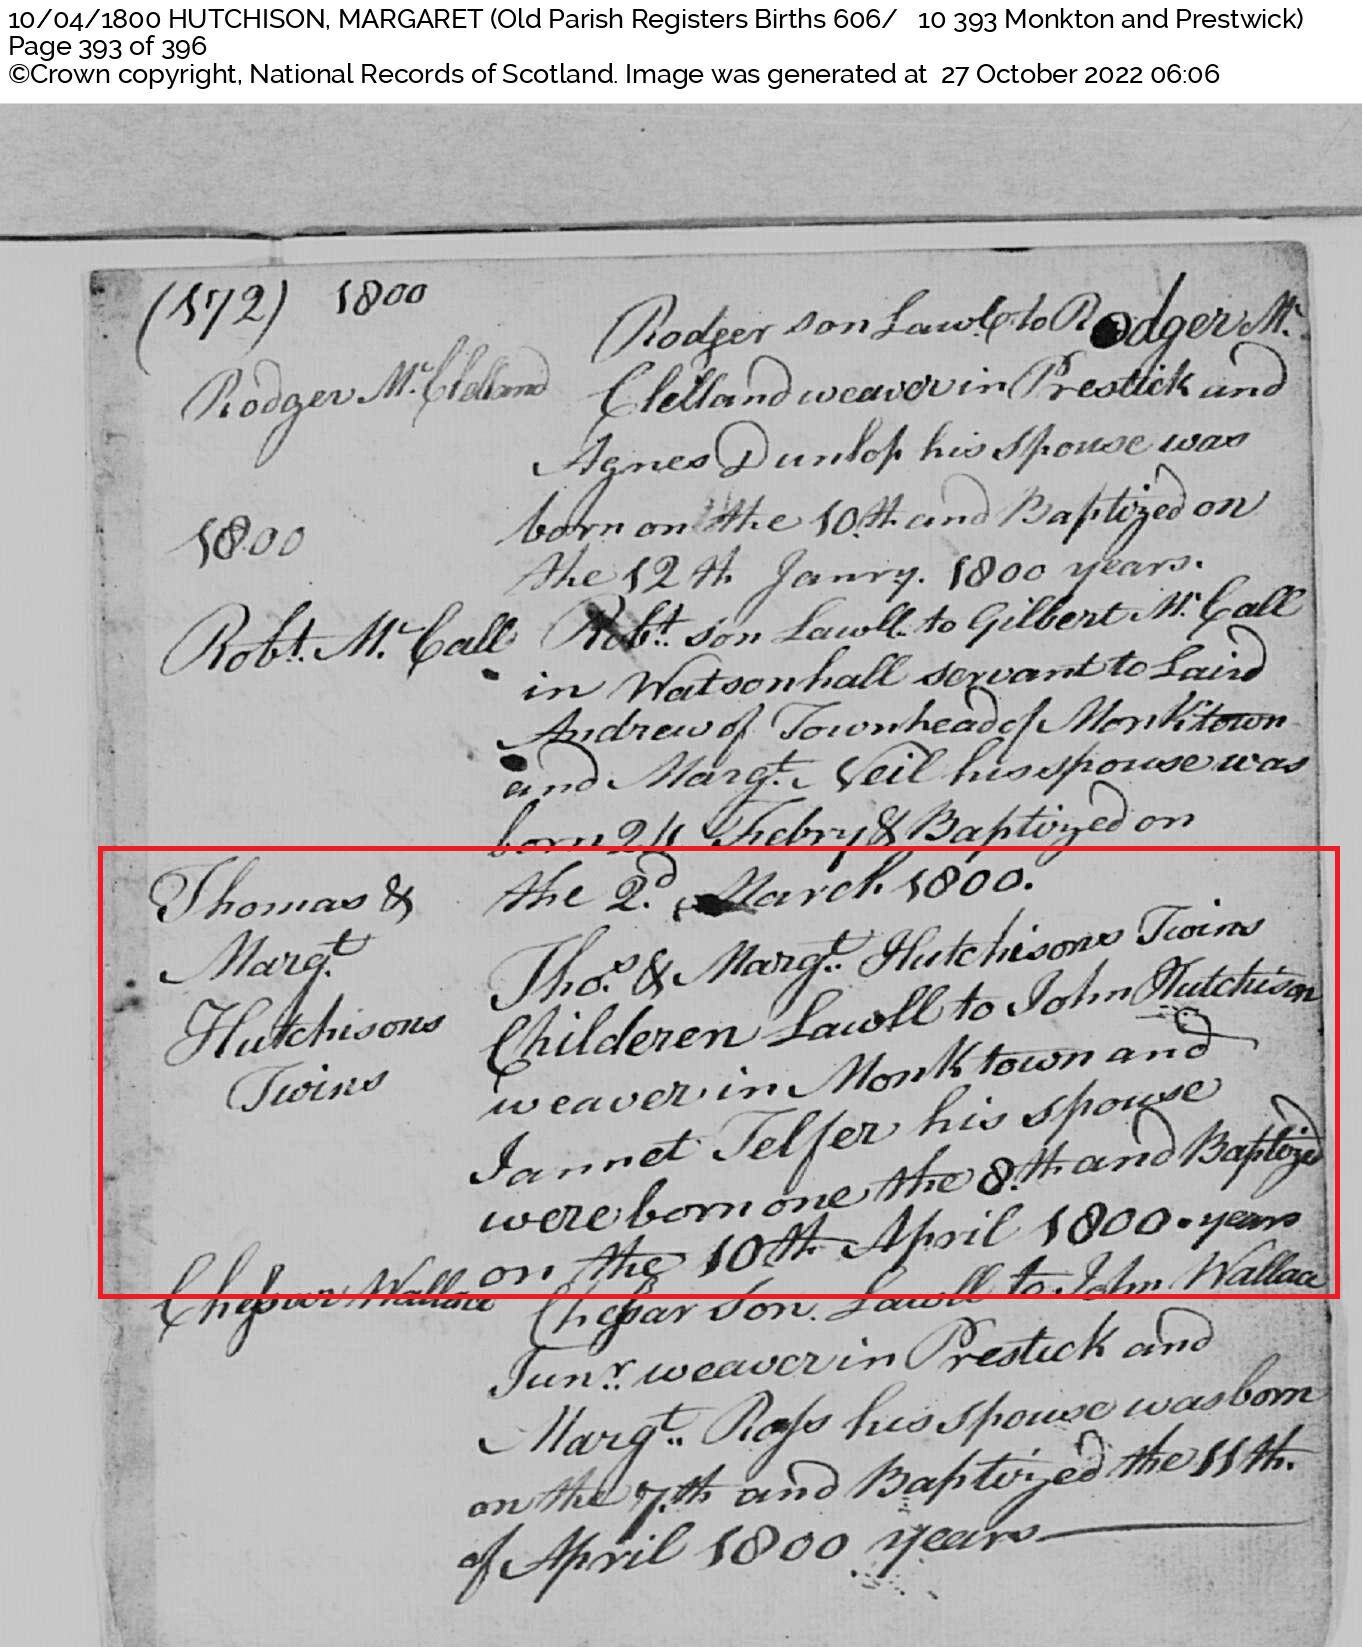 10/04/1800 HUTCHISON, MARGARET (Old Parish Registers Births 606/ 10 393 Monkton and Prestwick)
Page 393 of 396
©Crown copyright, National Records of Scotland. Image was generated at 27 October 2022 06:06
(172) 1800
Rodger McClelland
Rodger son Lawl. to Rodger Mc.
Clelland weaver in Prestick and
Agnes Dunlop his spouse was
born on the 10.th and Baptized on
the 12th Janry. 1800 years.
1800
Robt. Mc. Call
Robt. son Lawll. to Gilbert Mc. Call
in Watsonhall servant to Laird
Andrew of Townhead of Monktown
and Margt. Neil his spouse was
born 24 Febry & Baptized on
the 2.d March 1800.
Thomas &
Margt.
Hutchisons
Twins
Thos. & Margt. Hutchisons Twins
Childeren Lawll to John Hutchison
weaver in Monktown and
Jannet Telfer his spouse
were born one the 8.th and Baptized
on the 10th April 1800. years
Chessar Wallace
Chessar son. Lawll to John Wallace
Junr. weaver in Prestick and
Margt. Ross his spouse was born
on the 7.th and Baptized the 11th.
of April 1800 years